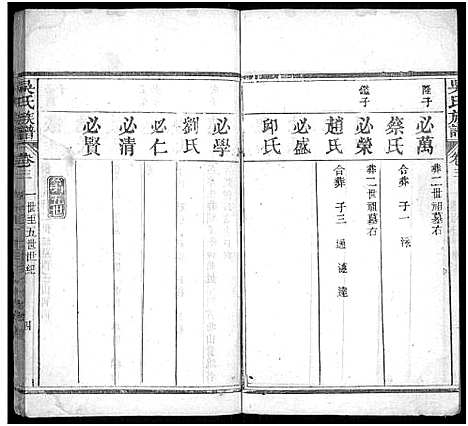 吳氏族譜
卷三
隆子
必萬
葬二世祖墓右
蔡氏
合葬 子一 祿
鑑子
必榮
葬二世祖墓右
趙氏
合葬 子三 通 達
必盛
邱氏
必學
劉氏
必仁
必清
必賢
吳氏族譜
卷三
一世至五世世紀
四